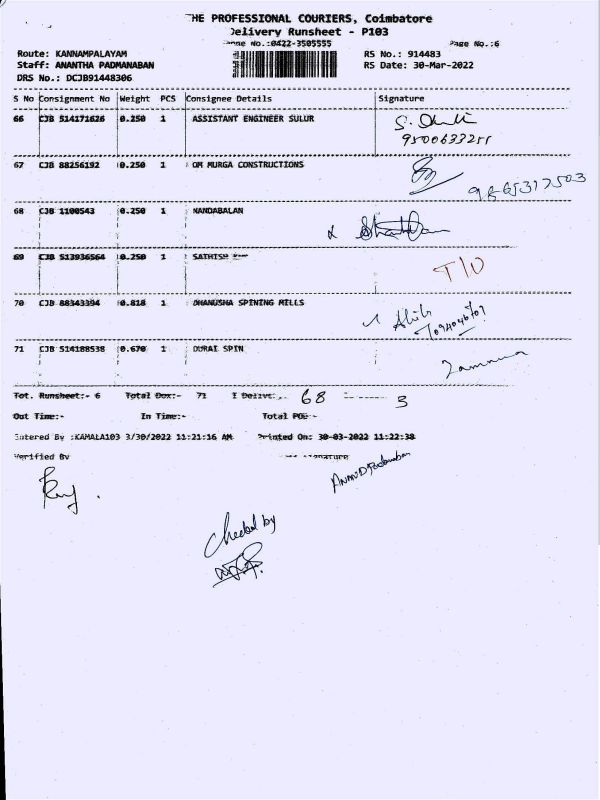 THE PROFESSIONAL COURIERS, Coimbatore
Delivery Runsheet - P103
Phone No.:0422-3505555 Page No.:6
Route: KANNAMPALAYAM RS No.: 914483
Staff: ANANTHA PADMANABAN RS Date: 30-Mar-2022
DRS No.: DCJB91448306
S No Consignment No Weight PCS Consignee Details Signature
66 CJB 514171626 0.250 1 ASSISTANT ENGINEER SULUR
67 CJB 88256192 0.250 1 OM MURGA CONSTRUCTIONS
68 CJB 1100543 0.250 1 NANDABALAN
69 CJB 513936564 0.250 1 SATHISH T/U
70 CJB 88343394 0.818 1 DHANUSHA SPINING MILLS
71 CJB 514188538 0.670 1 DURAI SPIN
Tot. Runsheet:- 6 Total Dox:- 71 68 3
Out Time:- In Time:- Total POD:-
Entered By :KAMALA103 3/30/2022 11:21:16 AM Printed On: 30-03-2022 11:22:38
Verified By Signature
checked by